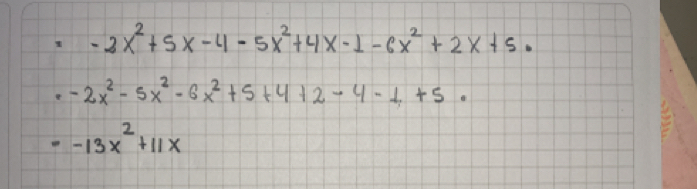 = -2x²+5x-4-5x²+4x-1-6x²+2x+5.
.-2x²-5x²-6x²+5+4+2-4-1+5.
= -13x²+11x